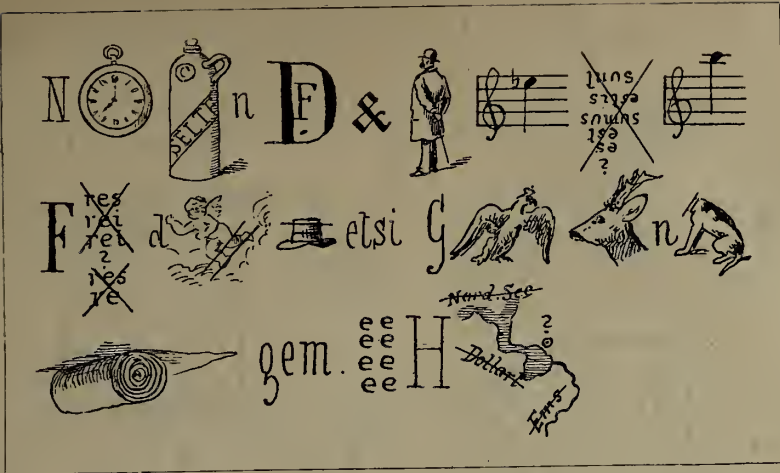 N SELTE n D F &
?
es
est
sumus
estis
sunt
F
res
rei
rei
?
res
re
d etsi G n
gem.
ee
ee
ee
ee
H
Nord-See
?
Dollart
Ems